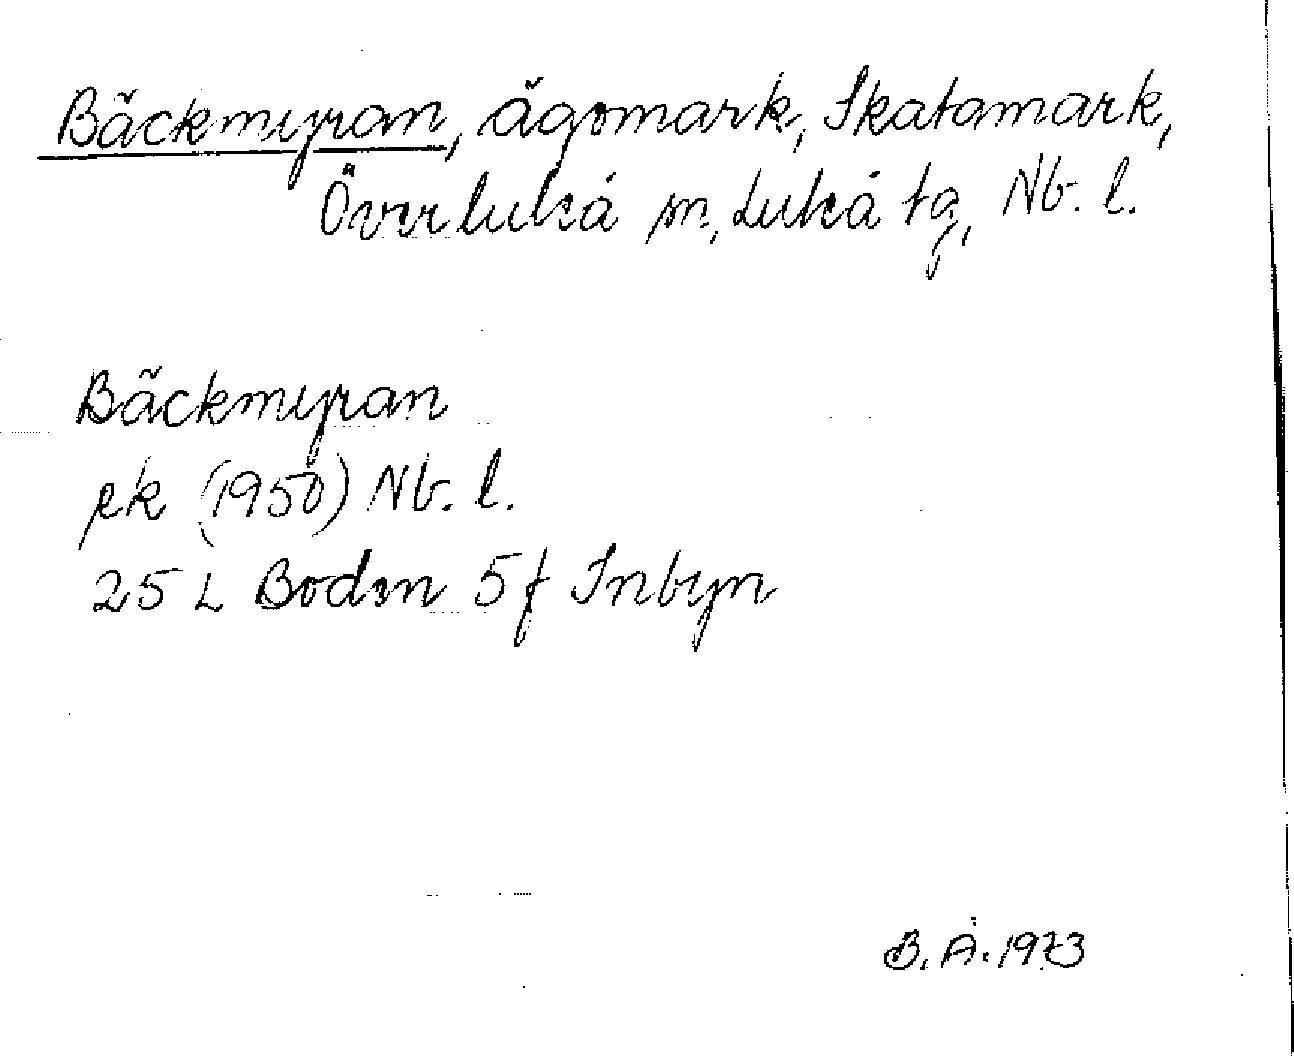 Bäckmyran, ägomark, Skatamark,
Överluleå sn, Luleå tg, Nb. l.
Bäckmyran
pk (1950) Nb. l.
25 L Boden 5f Inbyn
B. Å. 1973